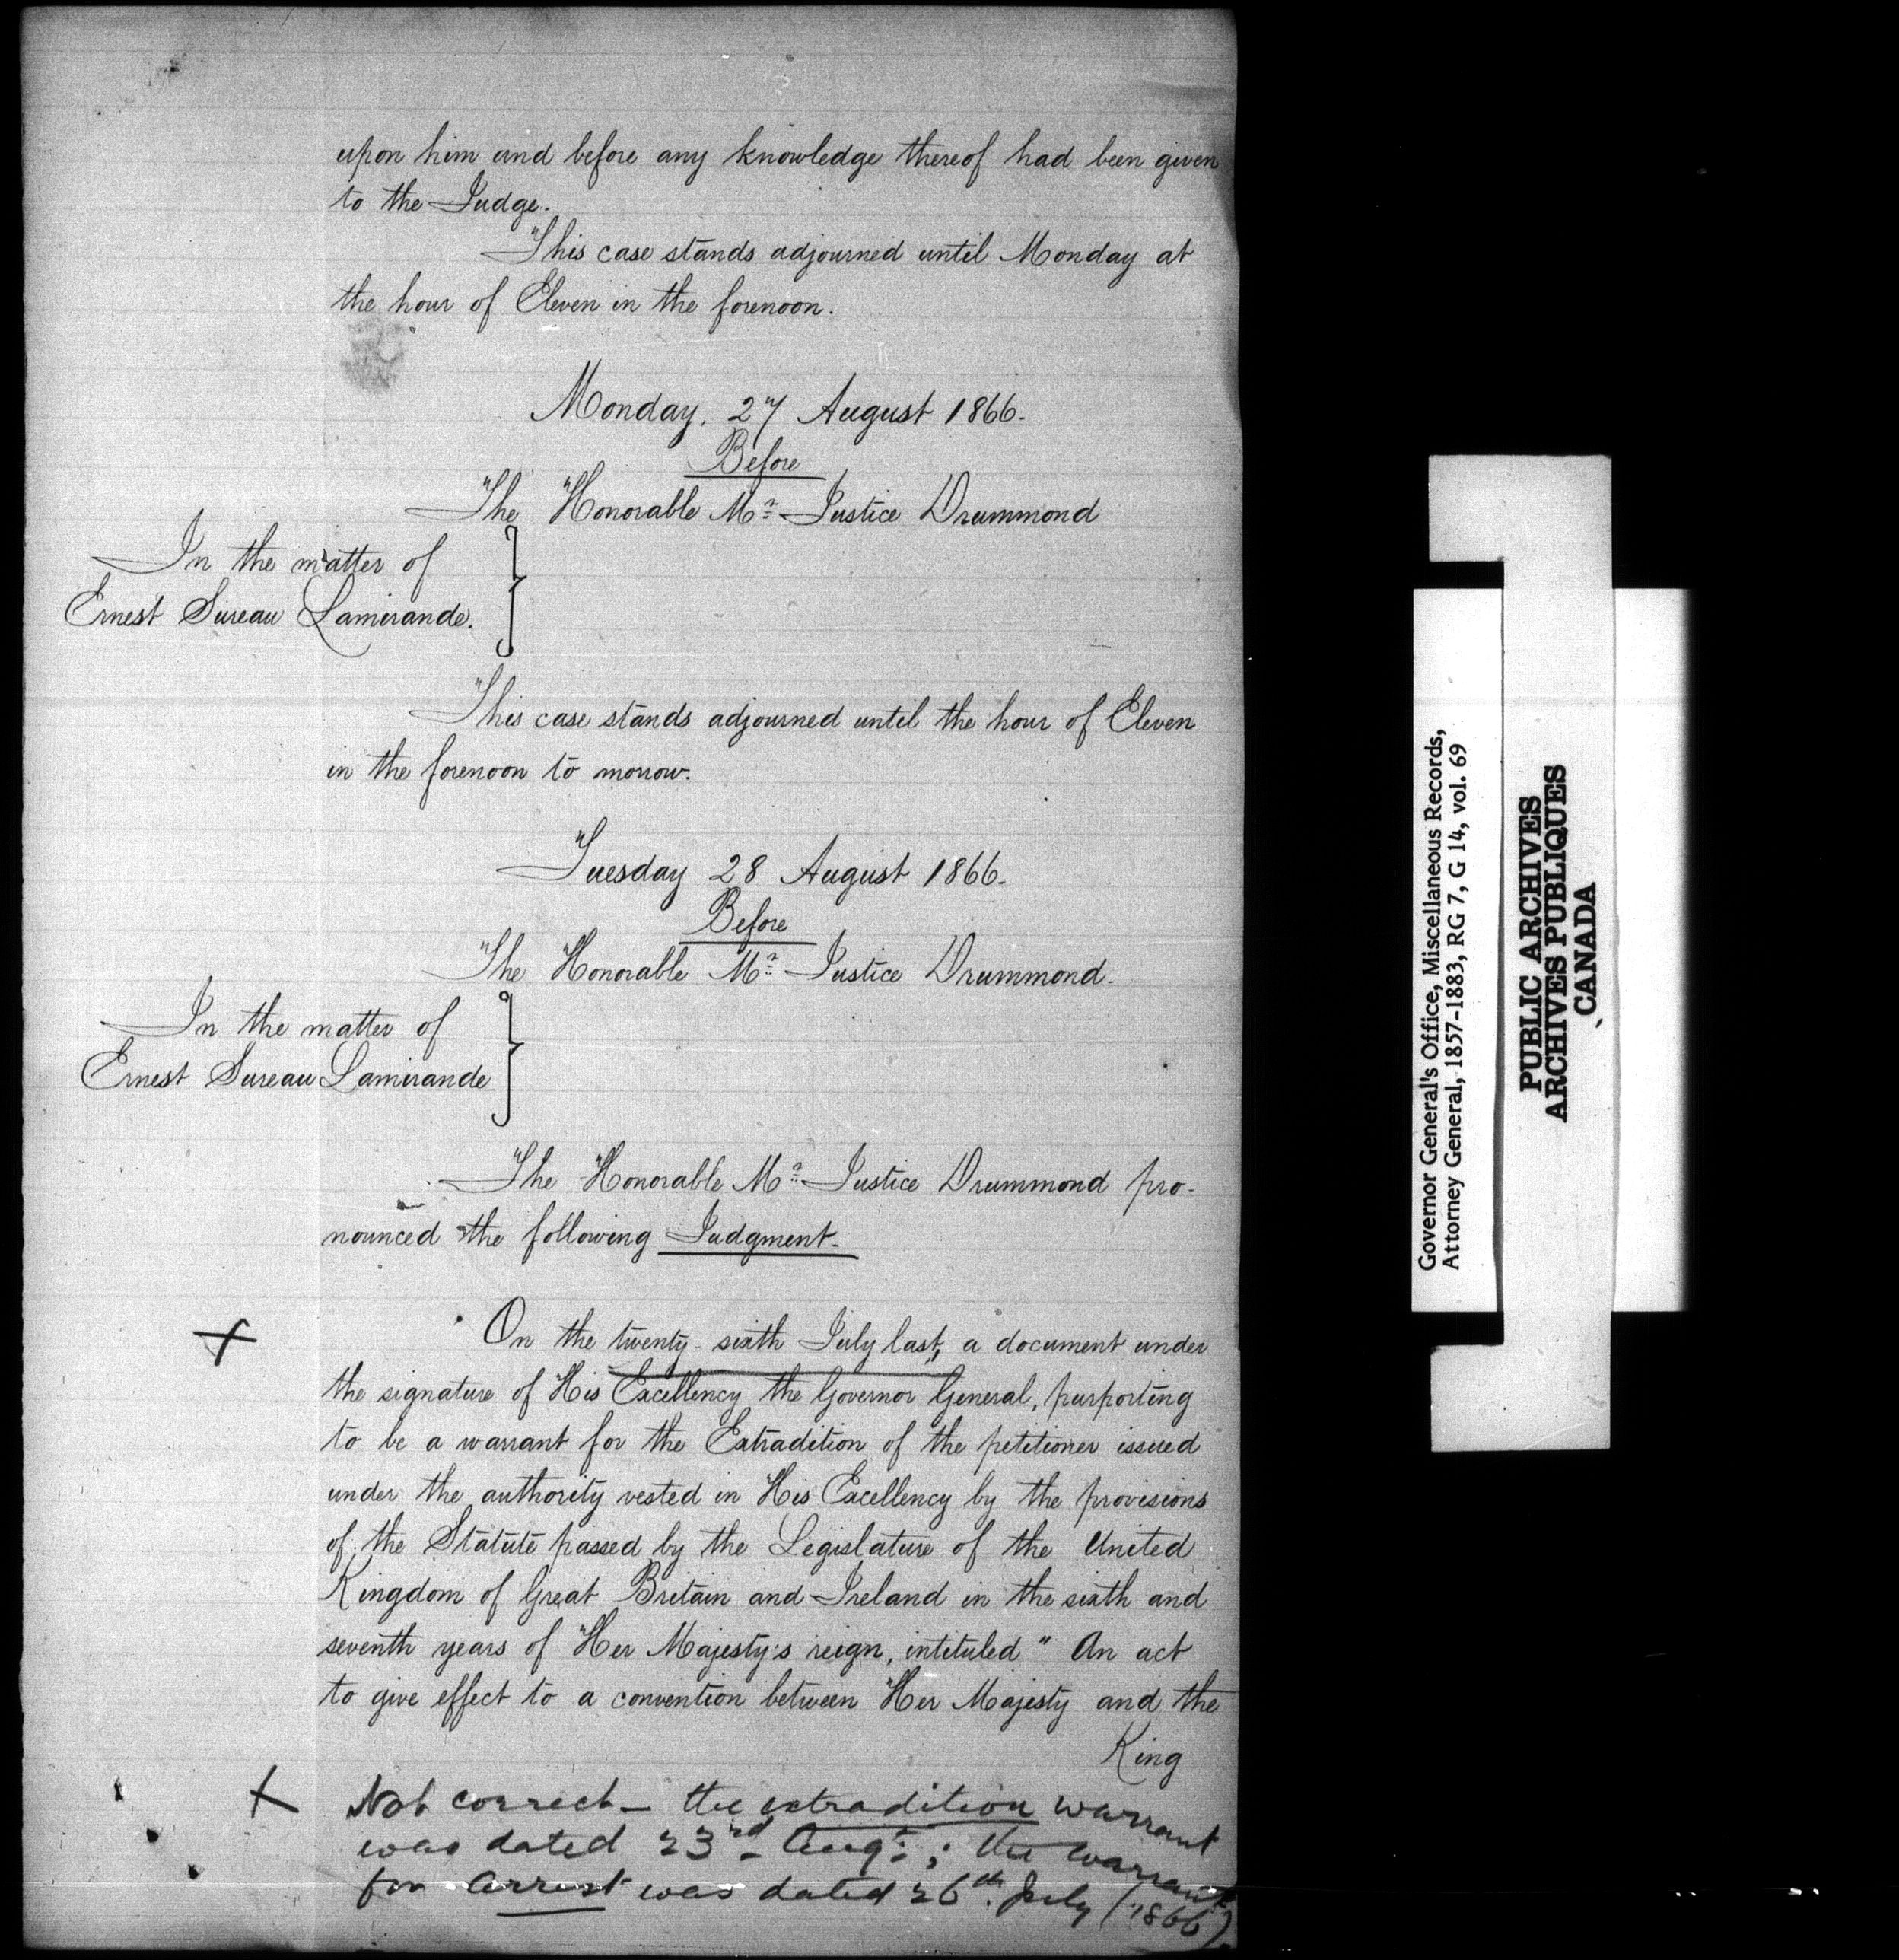 upon him and before any knowledge thereof had been given
to the Judge.
This case stands adjourned until Monday at
the hour of Eleven in the forenoon.
Monday, 27 August 1866.
Before
The Honorable Mr. Justice Drummond
In the matter of
Ernest Sureau Lamirande.
This case stands adjourned until the hour of Eleven
in the forenoon to morrow.
Tuesday 28 August 1866.
Before
The Honorable Mr. Justice Drummond.
In the matter of
Ernest Sureau Lamirande
The Honorable Mr. Justice Drummond pro-
nounced the following Judgment.
x On the twenty-sixth July last, a document under
the signature of His Excellency the Governor General, purporting
to be a warrant for the Extradition of the petitioner issued
under the authority vested in His Excellency by the provisions
of the Statute passed by the Legislature of the United
Kingdom of Great Britain and Ireland in the sixth and
seventh years of Her Majesty's reign, intituled " An act
to give effect to a convention between Her Majesty and the
King
x Not correct - the extradition warrant
was dated 23rd Augt.; the warrant
for arrest was dated 26th July (1866).
Governor General's Office, Miscellaneous Records,
Attorney General, 1857-1883, RG 7, G 14, vol. 69
PUBLIC ARCHIVES
ARCHIVES PUBLIQUES
CANADA